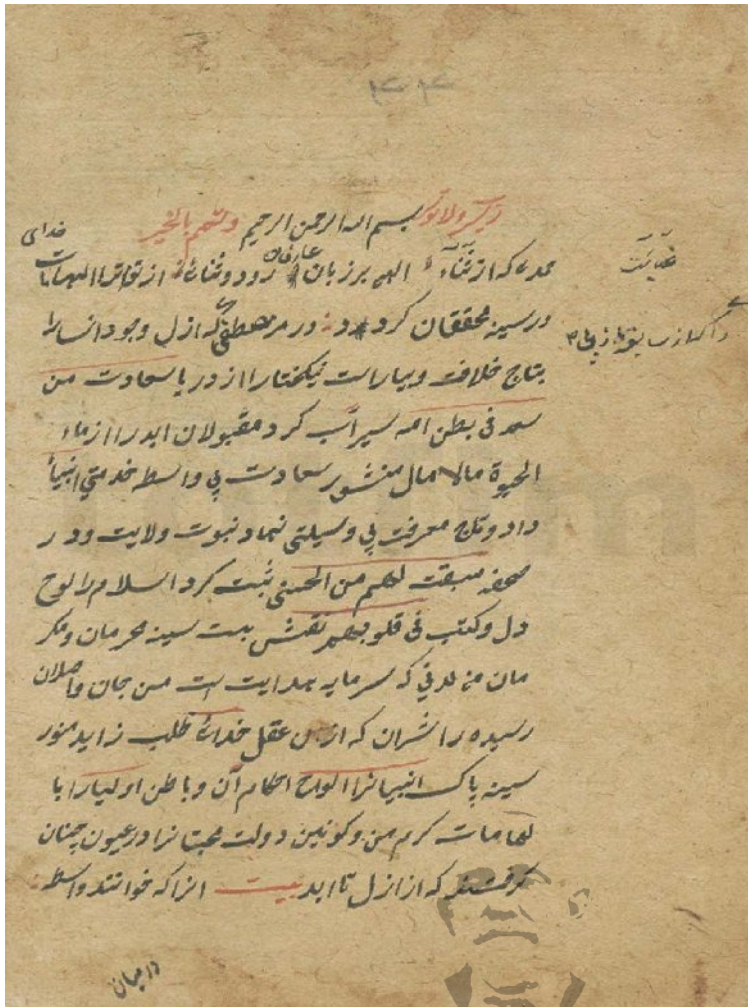 ۴۴
رب یسر ولا تعسر بسم الله الرحمن الرحیم وتمم بالخیر
حمدی که از ثناء الهی بر زبان عارفان رود و ثنای از تواتر الهامات خدای
در سینه محققان کرد در مر مصطفی که ازل وجود انسانرا
بتاج خلافت وبیاراست نیکبختانرا از دریا سعادت من
سعد فی بطن امه سیرآب کرد مقبولان ابد را از ماء
الحیوة مالا مال منشور سعادت بی واسطه خدمتی انبیا
داد وتاج معرفت بی وسیلتی نهاد نبوت ولایت ودر
صحفه سبقت لهم من الحسنی ثبت کرد السلام را لوح
دل وکتب فی قلوبهم نقش ببست سینه محرمان ومکر
مان من لدنی که سرمایه هدایت است من جان واصلان
رسیده را که از عقل خدای طلب زاید منور
سینه پاک انبیا را الواح احکام آن وباطن اولیا را با
لهامات کرم من وکونین دولت محبتانرا در عیون چنان
گرفتند که از ازل تا ابد بیت انرا که خوانند واسطه
غایت
در میان